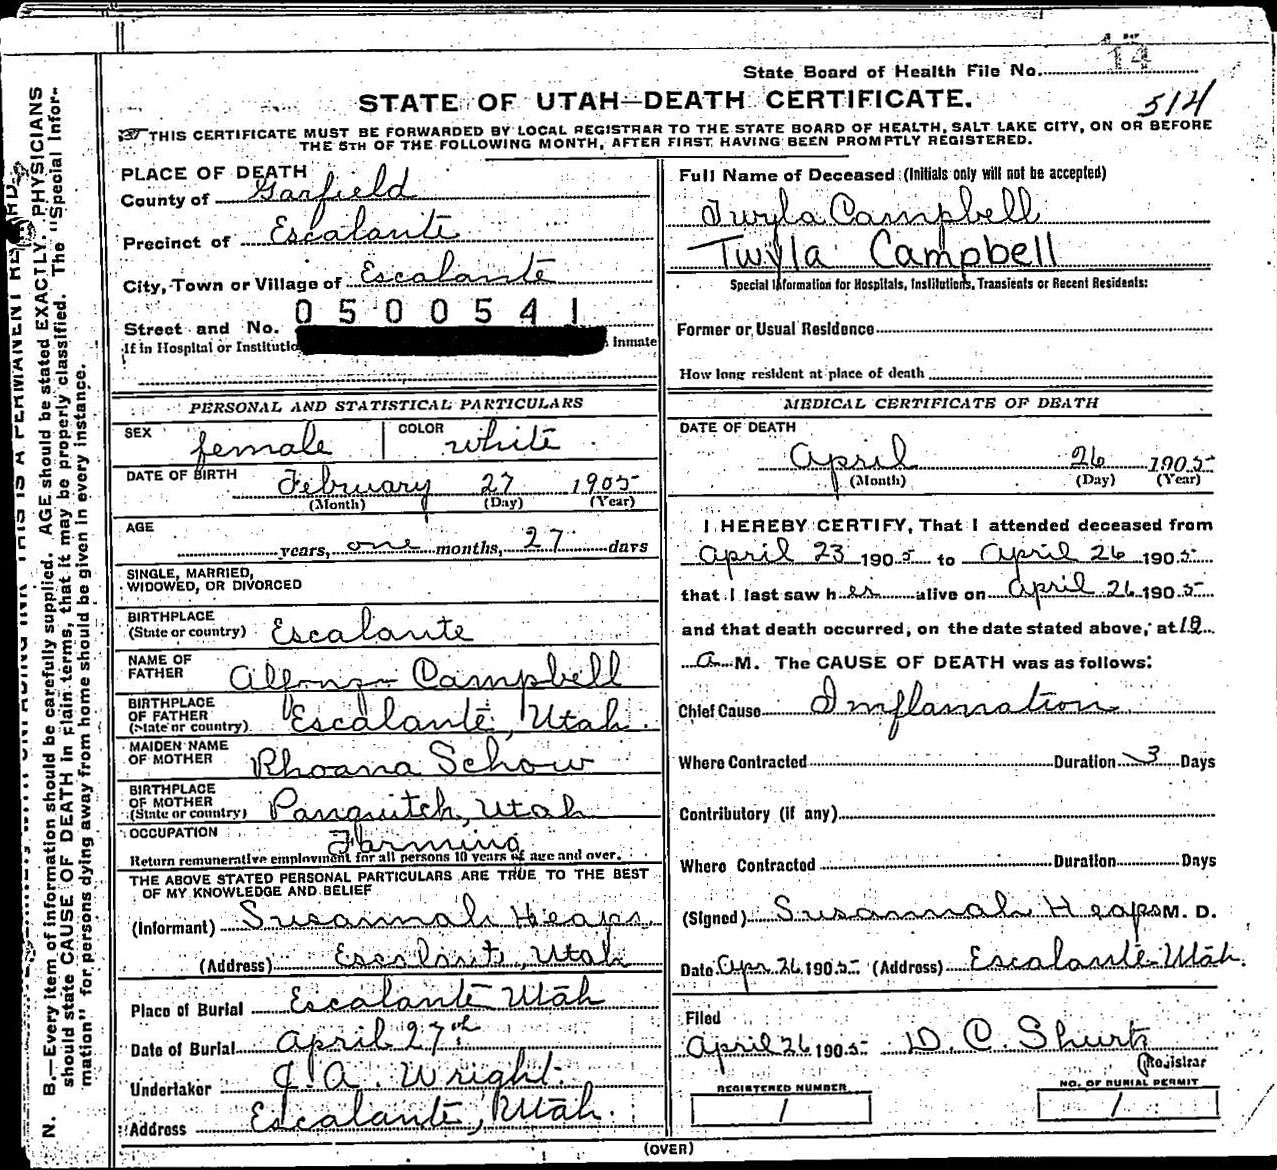 State Board of Health File No. 14
514
STATE OF UTAH—DEATH CERTIFICATE.
THIS CERTIFICATE MUST BE FORWARDED BY LOCAL REGISTRAR TO THE STATE BOARD OF HEALTH, SALT LAKE CITY, ON OR BEFORE
THE 5TH OF THE FOLLOWING MONTH, AFTER FIRST HAVING BEEN PROMPTLY REGISTERED.
PLACE OF DEATH
County of Garfield
Precinct of Escalante
City, Town or Village of Escalante
0500541
Street and No.
If in Hospital or Institutio inmate
PERSONAL AND STATISTICAL PARTICULARS
SEX female COLOR white
DATE OF BIRTH February 27 1905
(Month) (Day) (Year)
AGE
years, one months, 27 days
SINGLE, MARRIED,
WIDOWED, OR DIVORCED
BIRTHPLACE
(State or country) Escalante
NAME OF
FATHER Alfonzo Campbell
BIRTHPLACE
OF FATHER
(State or country) Escalante, Utah
MAIDEN NAME
OF MOTHER Rhoana Schow
BIRTHPLACE
OF MOTHER
(State or country) Panguitch, Utah
OCCUPATION Farming
Return remunerative employment for all persons 10 years of age and over.
THE ABOVE STATED PERSONAL PARTICULARS ARE TRUE TO THE BEST
OF MY KNOWLEDGE AND BELIEF
(Informant) Susannah Heaps
(Address) Escalante, Utah
Place of Burial Escalante Utah
Date of Burial April 27th
Undertaker J. A. Wright
Address Escalante, Utah.
Full Name of Deceased (Initials only will not be accepted)
Twyla Campbell
Twyla Campbell
Special Information for Hospitals, Institutions, Transients or Recent Residents:
Former or Usual Residence
How long resident at place of death
MEDICAL CERTIFICATE OF DEATH
DATE OF DEATH
April 26 1905
(Month) (Day) (Year)
I HEREBY CERTIFY, That I attended deceased from
April 23 1905 to April 26 1905
that I last saw her alive on April 26 1905
and that death occurred, on the date stated above, at 10
a M. The CAUSE OF DEATH was as follows:
Chief Cause Inflamation
Where Contracted Duration 3 Days
Contributory (if any)
Where Contracted Duration Days
(Signed) Susannah Heaps M. D.
Date Apr 26 1905 (Address) Escalante Utah.
Filed
April 26 1905 D. C. Shurtz
Registrar
REGISTERED NUMBER
1
NO. OF BURIAL PERMIT
1
(OVER)
N. B.—Every item of information should be carefully supplied. AGE should be stated EXACTLY. PHYSICIANS
should state CAUSE OF DEATH in plain terms, that it may be properly classified. The "Special Infor-
mation" for persons dying away from home should be given in every instance.
THIS IS A PERMANENT